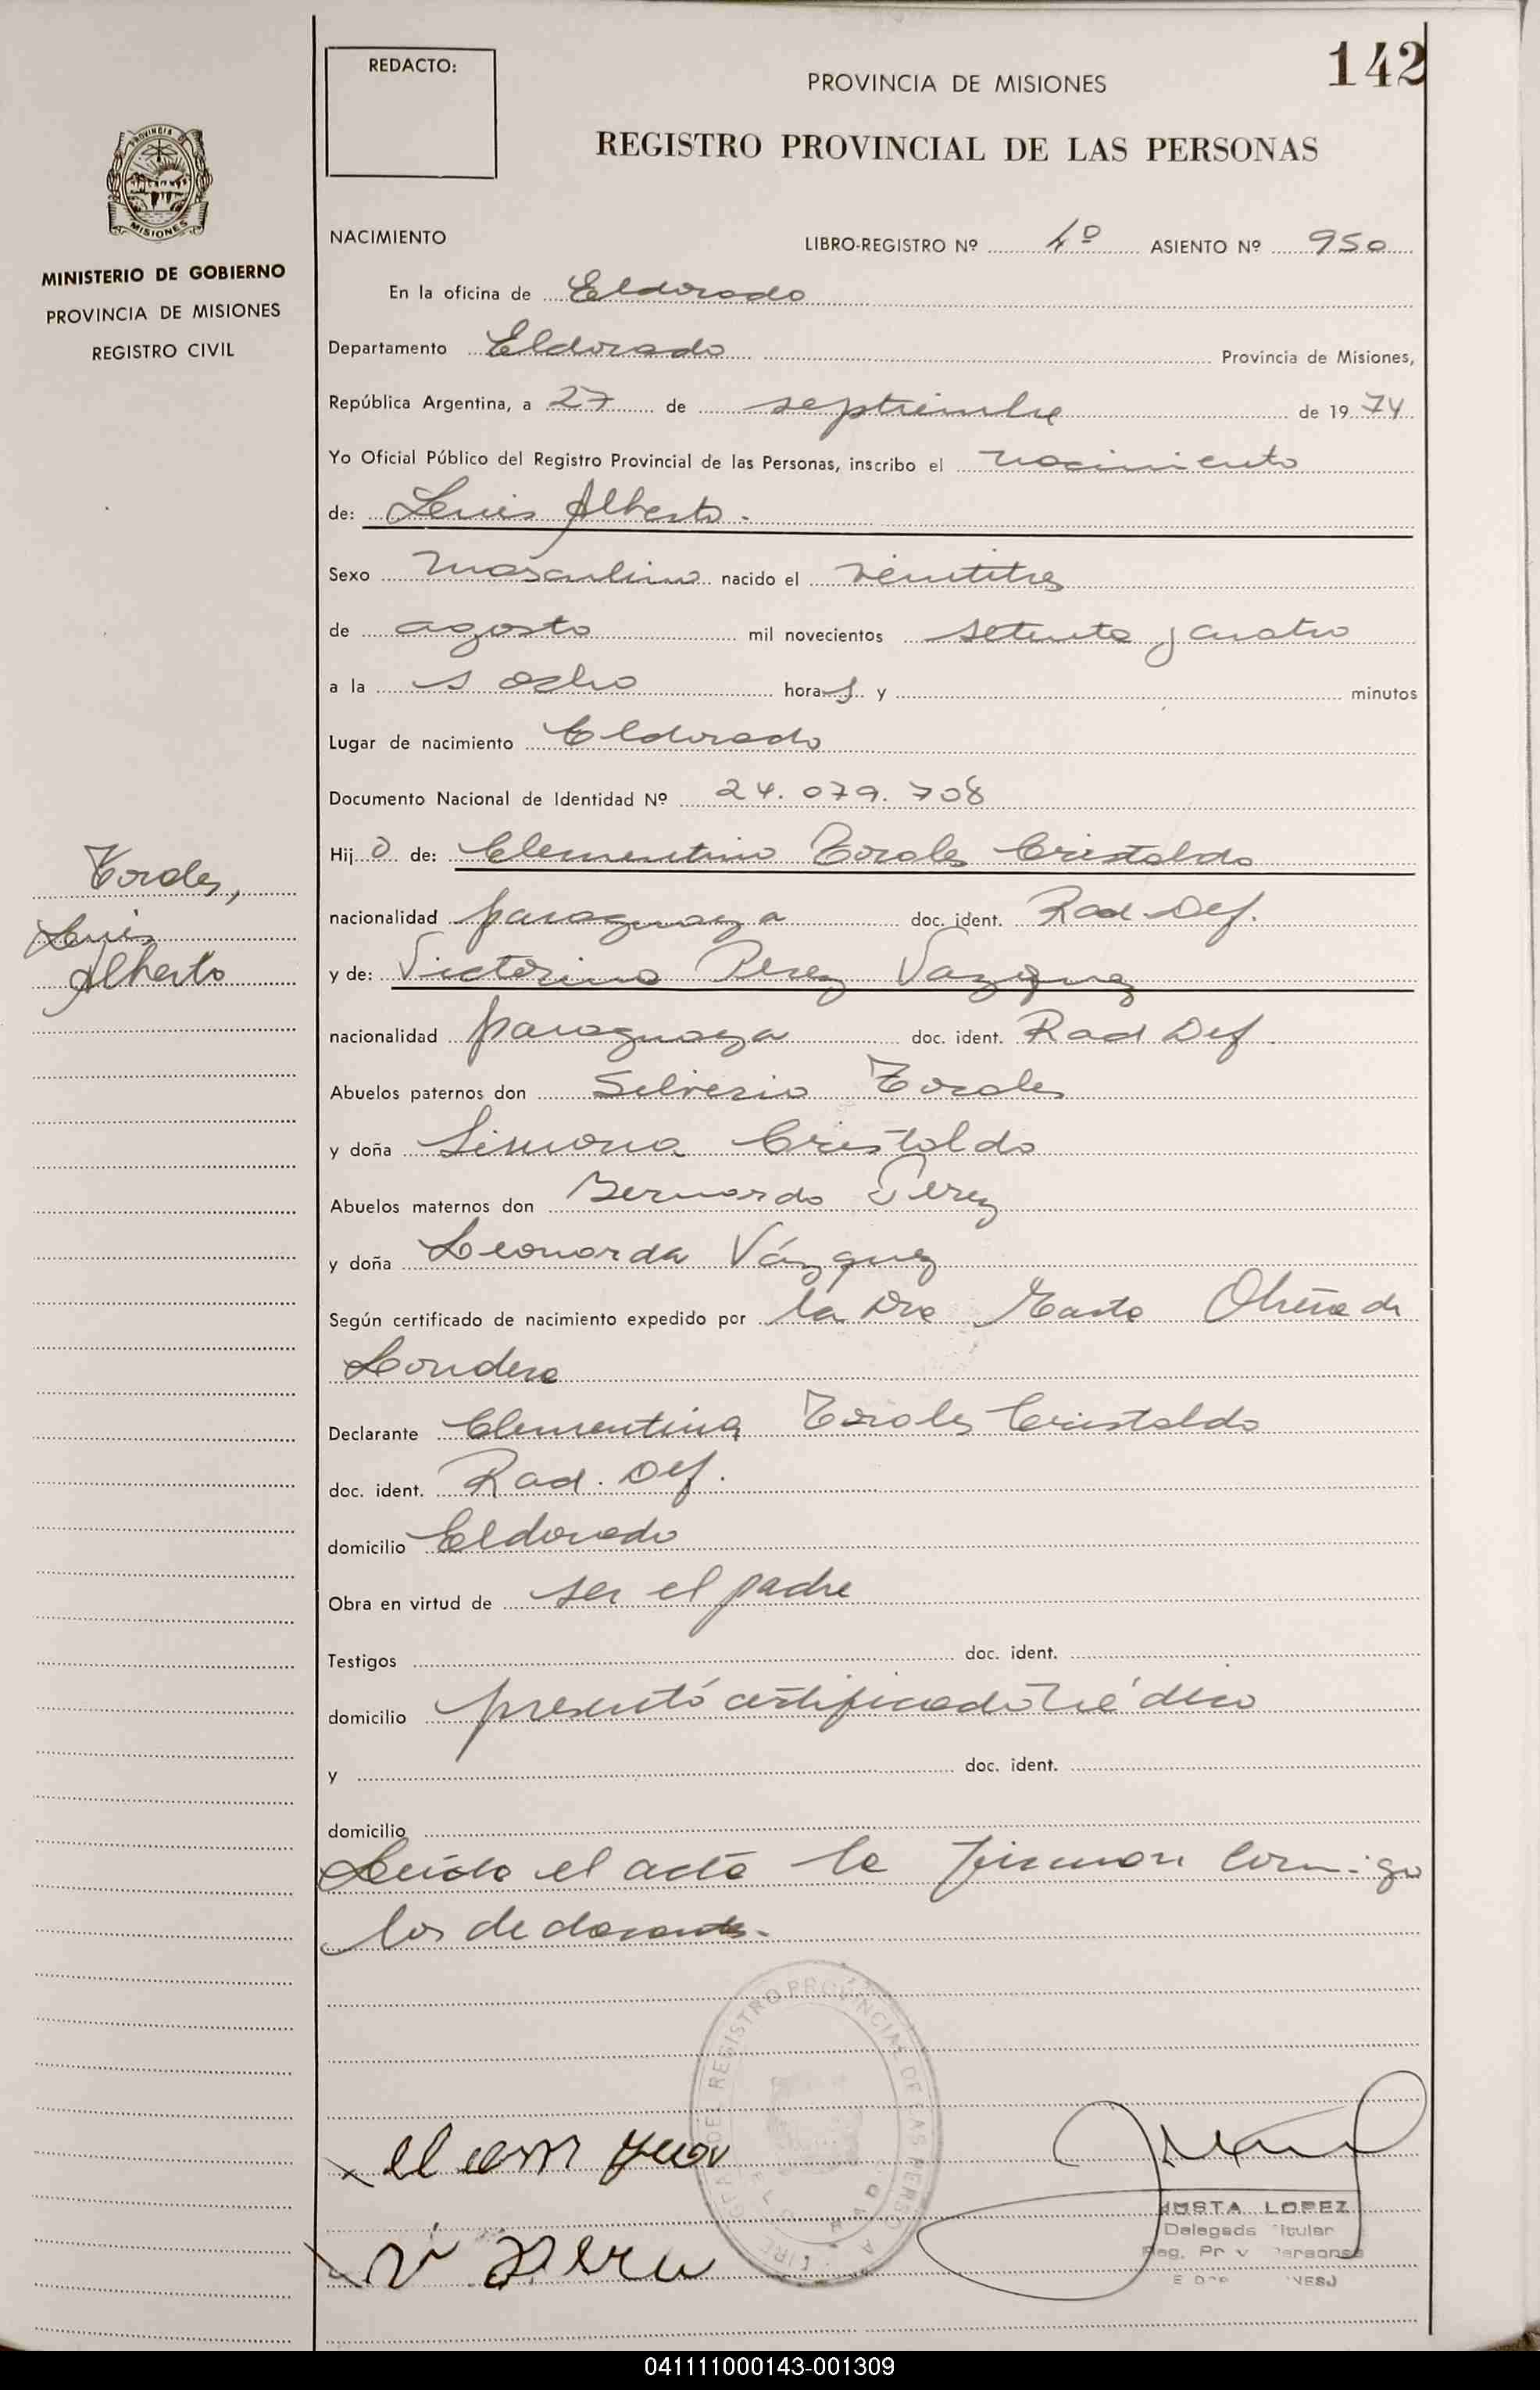 142
REDACTO:
PROVINCIA DE MISIONES
REGISTRO PROVINCIAL DE LAS PERSONAS
PROVINCIA DE
MISIONES
MINISTERIO DE GOBIERNO
PROVINCIA DE MISIONES
REGISTRO CIVIL
NACIMIENTO
LIBRO-REGISTRO Nº 4º ASIENTO Nº 950
En la oficina de Eldorado
Departamento Eldorado Provincia de Misiones,
República Argentina, a 27 de septiembre de 1974
Yo Oficial Público del Registro Provincial de las Personas, inscribo el nacimiento
de: Luis Alberto.
Sexo masculino nacido el veintitres
de agosto mil novecientos setenta y cuatro
a la s ocho horas y minutos
Lugar de nacimiento Eldorado
Documento Nacional de Identidad Nº 24.079.708
Hijo de: Clementino Torales Cristaldo
nacionalidad paraguaya doc. ident. Rad. Def.
y de: Victorina Perez Vazquez
nacionalidad paraguaya doc. ident. Rad Def.
Abuelos paternos don Silverio Torales
y doña Simona Cristaldo
Abuelos maternos don Bernardo Perez
y doña Leonarda Vázquez
Según certificado de nacimiento expedido por la Dra de
Declarante Clementina Torales Cristaldo
doc. ident. Rad. Def.
domicilio Eldorado
Obra en virtud de ser el padre
Testigos doc. ident.
domicilio presentó certificado médico
y doc. ident.
domicilio
Leída el acta la firman conmigo
los declarantes.
Torales,
Luis
Alberto
REGISTRO PROVINCIAL DE LAS PERSONAS
LOPEZ
Delegado Titular
041111000143-001309